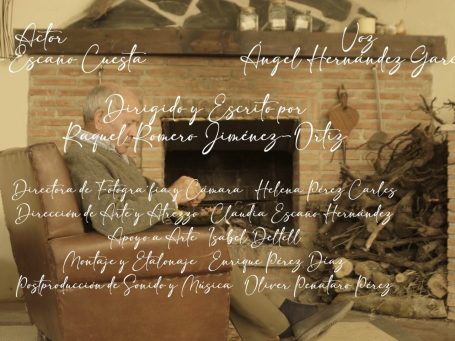 Actor
Escano Cuesta
Voz
Ángel Hernández Garc
Dirigido y Escrito por
Raquel Romero Jiménez-Ortiz
Directora de Fotografía y Cámara Helena Pérez Carles
Dirección de Arte y Atrezzo Claudia Escano Hernández
Apoyo a Arte Isabel Deltell
Montaje y Etalonaje Enrique Pérez Díaz
Postproducción de Sonido y Música Oliver Penataro Pérez